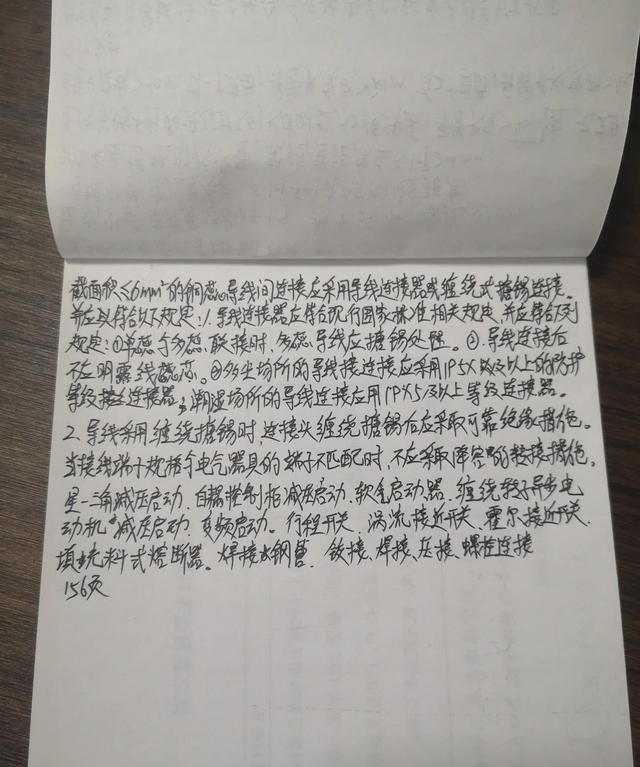 截面积≤6mm²的铜芯导线间连接应采用导线连接器或缠绕式搪锡连接。
并应符合以下规定:1.导线连接器应符合现行国家标准相关规定,并应符合下列
规定:①单芯与多芯联接时,多芯导线应搪锡处理。②.导线连接后
不应明露线芯。③多尘场所的导线连接应采用IP5X及以上的防护
等级连接器;潮湿场所的导线连接应用IPX5及以上等级连接器。
2.导线采用缠绕搪锡时,连接头缠绕搪锡后应采取可靠绝缘措施。
当接线端子规格与电气器具的端子不匹配时,不应采取降容的转接措施。
星-三角减压启动.自耦减压启动.软启动器.缠绕转子异步电
动机减压启动.变频启动。行程开关.涡流接近开关.霍尔接近开关.
填充料式熔断器。焊接钢管.铰接、焊接、压接、螺栓连接
156页